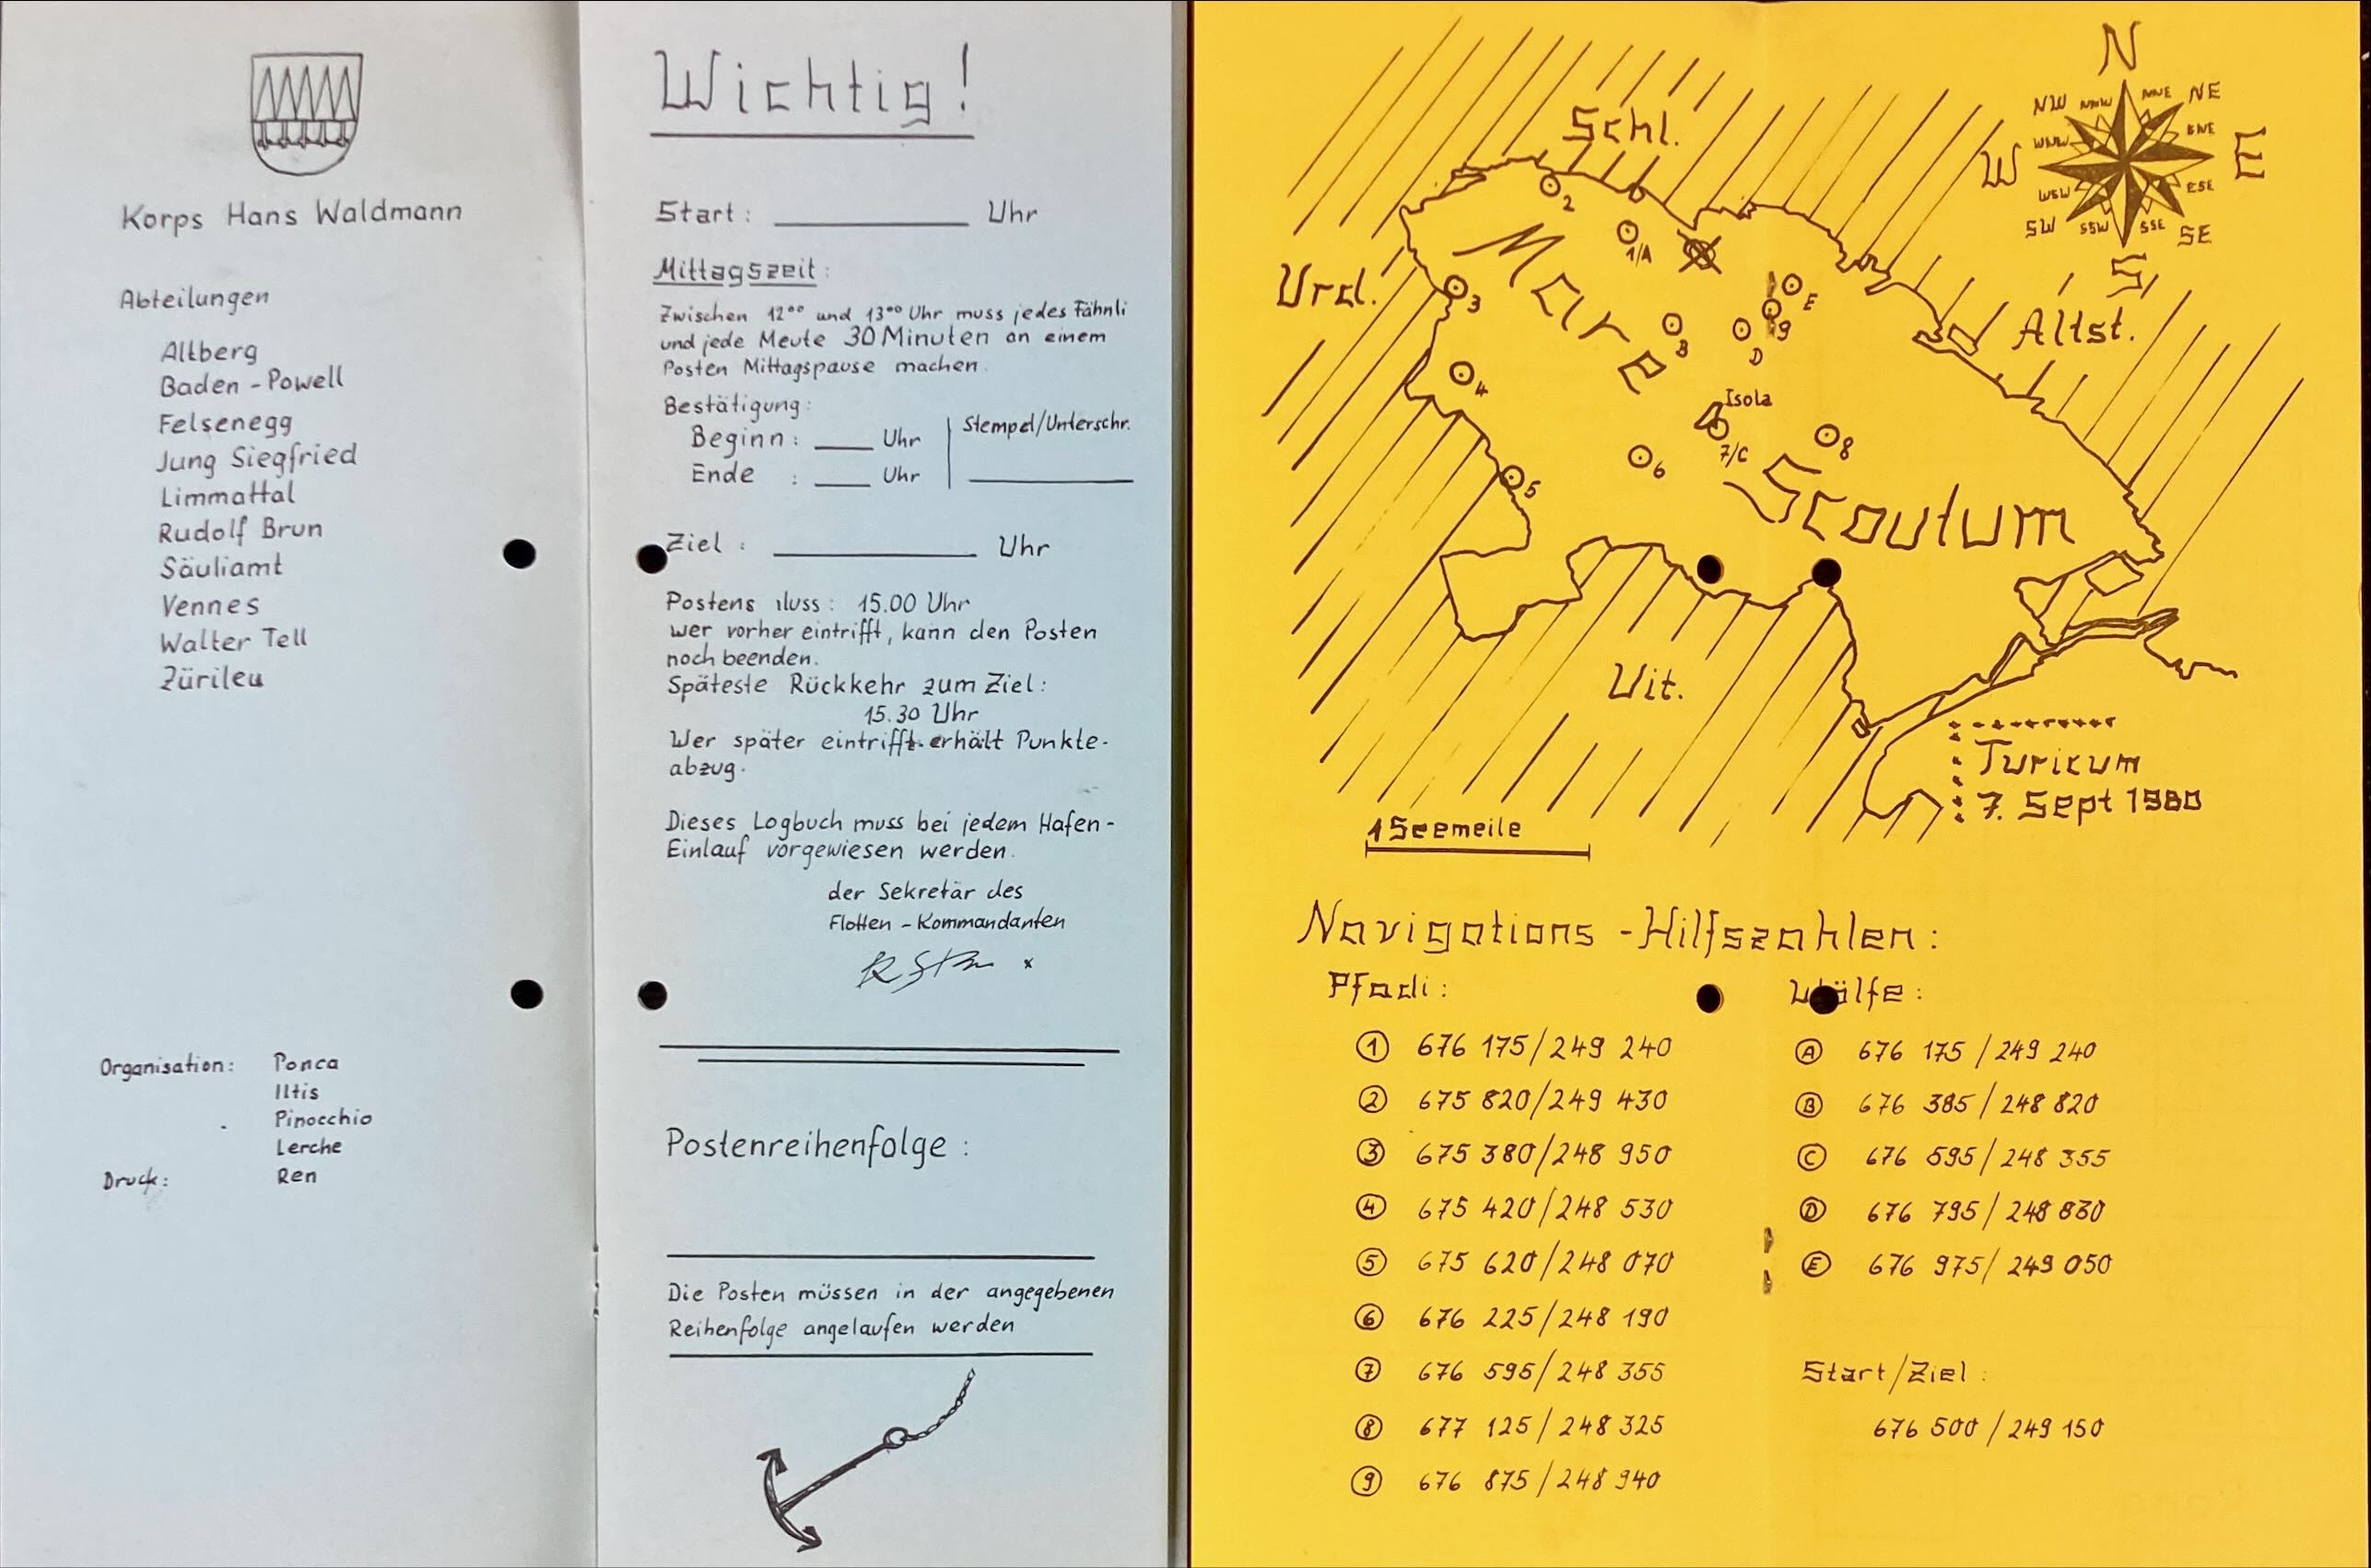 Korps Hans Waldmann
Abteilungen
Altberg
Baden-Powell
Felsenegg
Jung Siegfried
Limmattal
Rudolf Brun
Säuliamt
Vennes
Walter Tell
Zürileu
Organisation: Ponca
Iltis
Pinocchio
Lerche
Druck: Ren
Wichtig!
Start: ______ Uhr
Mittagszeit:
Zwischen 12⁰⁰ und 13⁰⁰ Uhr muss jedes Fähnli
und jede Meute 30 Minuten an einem
Posten Mittagspause machen.
Bestätigung:
Stempel/Unterschr.
Beginn: ___ Uhr
Ende : ___ Uhr
Ziel : ______ Uhr
15.00 Uhr
wer vorher eintrifft, kann den Posten
noch beenden.
Späteste Rückkehr zum Ziel:
15.30 Uhr
Wer später eintrifft erhält Punkte-
abzug.
Dieses Logbuch muss bei jedem Hafen-
Einlauf vorgewiesen werden.
der Sekretär des
Flotten-Kommandanten
Postenreihenfolge :
Die Posten müssen in der angegebenen
Reihenfolge angelaufen werden
N
NW NNW NNE NE
WNW ENE
W E
WSW ESE
SW SSW SSE SE
S
Schl.
2
1/A
Urd.
3
Mare
E
9
B
D
Altst.
4
Isola
7/C
8
6
5
Scoutum
Uit.
Turicum
7. Sept 1980
1 Seemeile
Navigations-Hilfszahlen:
Pfadi:
① 676 175/249 240
② 675 820/249 430
③ 675 380/248 950
④ 675 420/248 530
⑤ 675 620/248 070
⑥ 676 225/248 190
⑦ 676 595/248 355
⑧ 677 125/248 325
⑨ 676 875/248 940
Wölfe:
Ⓐ 676 175/249 240
Ⓑ 676 385/248 820
Ⓒ 676 595/248 355
Ⓓ 676 795/248 830
Ⓔ 676 975/249 050
Start/Ziel:
676 500/249 150